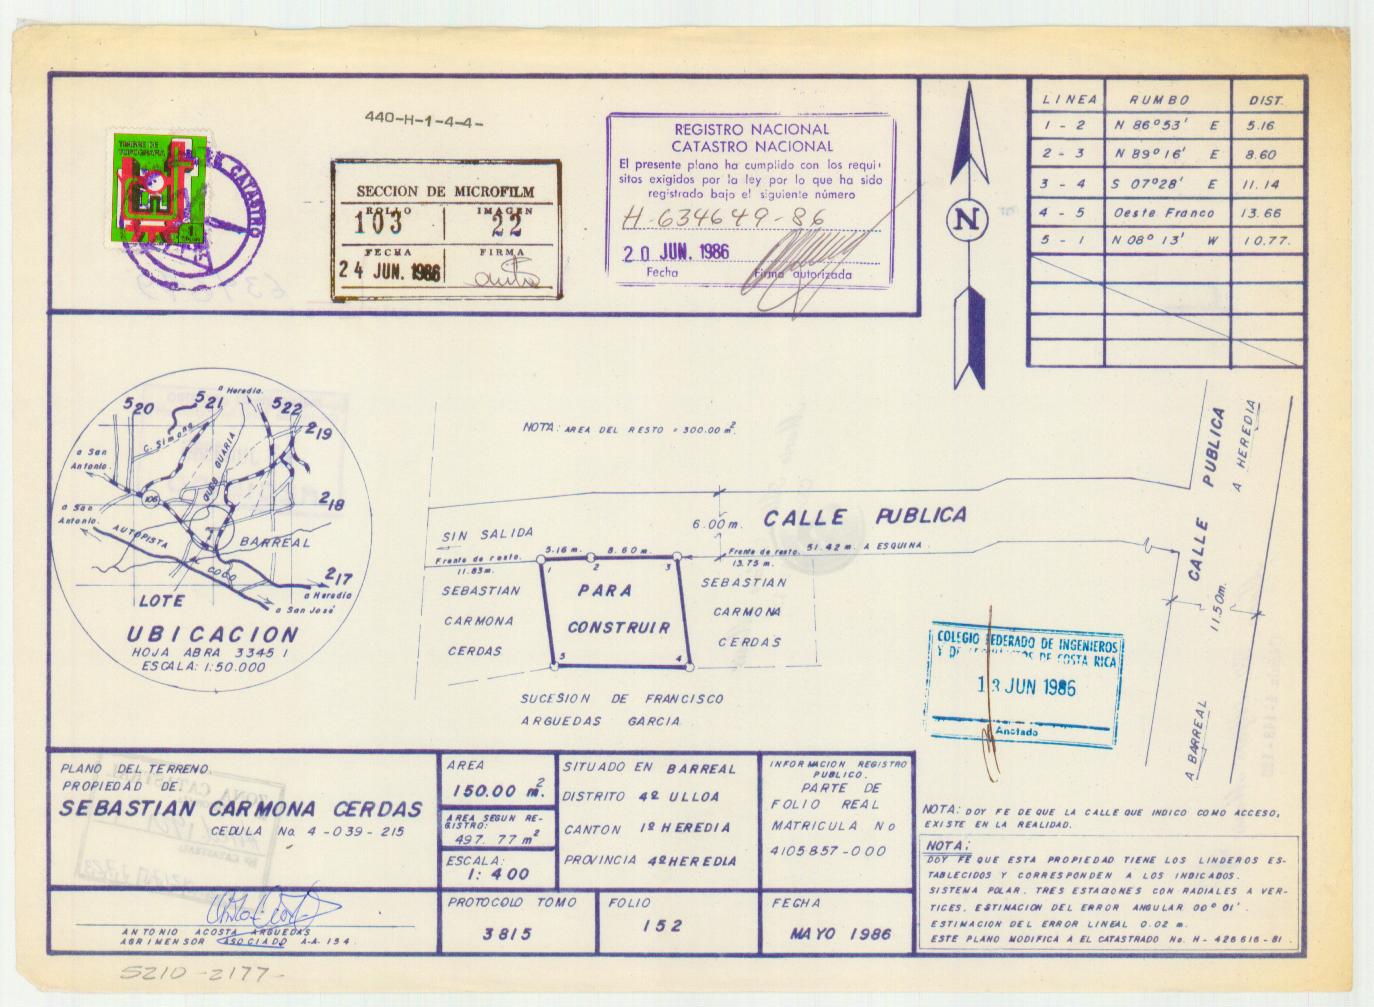 440-H-1-4-4-
TIMBRE DE
TOPOGRAFIA
CATASTRO
SECCION DE MICROFILM
ROLLO IMAGEN
103 22
FECHA FIRMA
24 JUN. 1986
REGISTRO NACIONAL
CATASTRO NACIONAL
El presente plano ha cumplido con los requi-
sitos exigidos por la ley por lo que ha sido
registrado bajo el siguiente número
H-634649-86
20 JUN. 1986
Fecha Firma autorizada
N
LINEA RUMBO DIST.
1 - 2 N 86°53' E 5.16
2 - 3 N 89°16' E 8.60
3 - 4 S 07°28' E 11.14
4 - 5 Oeste Franco 13.66
5 - 1 N 08° 13' W 10.77.
520 521 522
a Heredia.
219
C. Simona
QUEB GUARIA
a San
Antonio.
106
218
a San
Antonio.
AUTOPISTA
BARREAL
AL COCO
217
a Heredia
LOTE
a San José
UBICACION
HOJA ABRA 3345 I
ESCALA: 1:50.000
NOTA: AREA DEL RESTO = 300.00 m².
SIN SALIDA
6.00m. CALLE PUBLICA
Frente de resto.
11.83m.
5.16 m. 8.60 m.
Frente de resto. 51.42 m. A ESQUINA.
13.75 m.
1 2 3
SEBASTIAN
CARMONA
CERDAS
PARA
CONSTRUIR
SEBASTIAN
CARMONA
CERDAS
5 4
SUCESION DE FRANCISCO
ARGUEDAS GARCIA
CALLE PUBLICA
A HEREDIA
11.50m.
A BARREAL
COLEGIO FEDERADO DE INGENIEROS
Y DE ARQUITECTOS DE COSTA RICA
13 JUN 1986
Anotado
PLANO DEL TERRENO.
PROPIEDAD DE:
SEBASTIAN CARMONA CERDAS
CEDULA No. 4-039-215
AREA
150.00 m².
AREA SEGUN RE-
GISTRO:
497.77 m²
ESCALA:
1: 400
SITUADO EN BARREAL
DISTRITO 4º ULLOA
CANTON 1º HEREDIA
PROVINCIA 4º HEREDIA
INFORMACION REGISTRO
PUBLICO.
PARTE DE
FOLIO REAL
MATRICULA No
4105857-000
NOTA: DOY FE DE QUE LA CALLE QUE INDICO COMO ACCESO,
EXISTE EN LA REALIDAD.
NOTA:
DOY FE QUE ESTA PROPIEDAD TIENE LOS LINDEROS ES-
TABLECIDOS Y CORRESPONDEN A LOS INDICADOS.
SISTEMA POLAR. TRES ESTACIONES CON RADIALES A VER-
TICES. ESTIMACION DEL ERROR ANGULAR 00° 01'.
ESTIMACION DEL ERROR LINEAL 0.02 m.
ESTE PLANO MODIFICA A EL CATASTRADO No. H-426616-81.
ANTONIO ACOSTA ARGUEDAS
AGRIMENSOR ASOCIADO A-A-134.
PROTOCOLO TOMO
3815
FOLIO
152
FECHA
MAYO 1986
5210-2177-